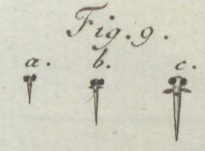 Fig. 9.
a. b. c.